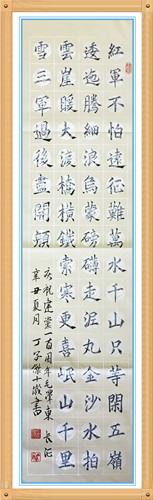 紅軍不怕遠征難萬水千山只等閒五嶺
逶迤騰細浪烏蒙磅礴走泥丸金沙水拍
雲崖暖大渡橋橫鐵索寒更喜岷山千里
雪三軍過後盡開顏
庆祝建党一百周年毛澤東 長征
辛丑夏月 丁 十歲書